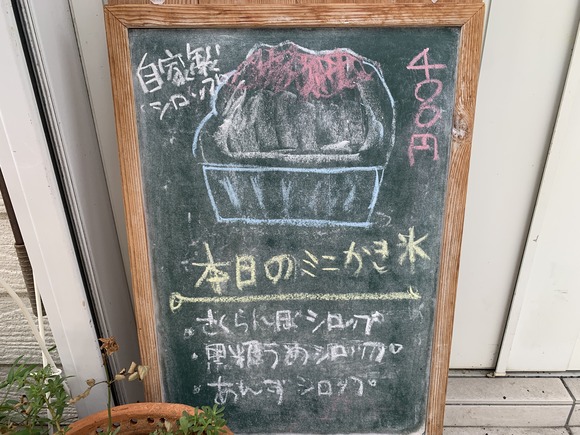 自家製
シロップ
400円
本日のミニかき氷
・さくらんぼシロップ
・黒糖うめシロップ
・あんずシロップ